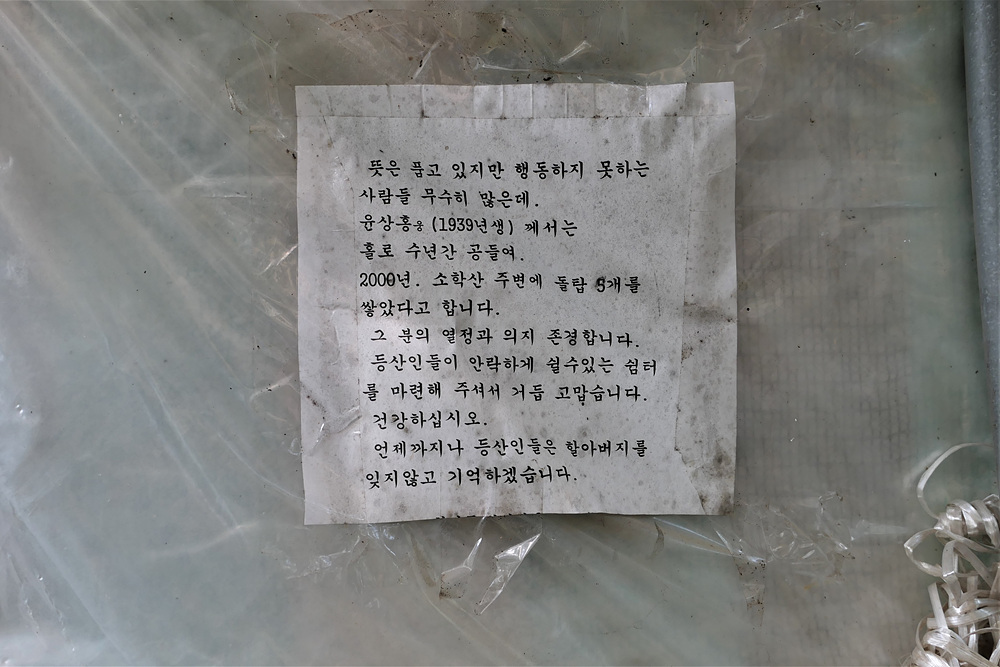 뜻은 품고 있지만 행동하지 못하는
사람들 무수히 많은데.
윤상홍옹 (1939년생) 께서는
홀로 수년간 공들여.
2000년. 소학산 주변에 돌탑 5개를
쌓았다고 합니다.
그 분의 열정과 의지 존경합니다.
등산인들이 안락하게 쉴수있는 쉼터
를 마련해 주셔서 거듭 고맙습니다.
건강하십시오.
언제까지나 등산인들은 할아버지를
잊지않고 기억하겠습니다.